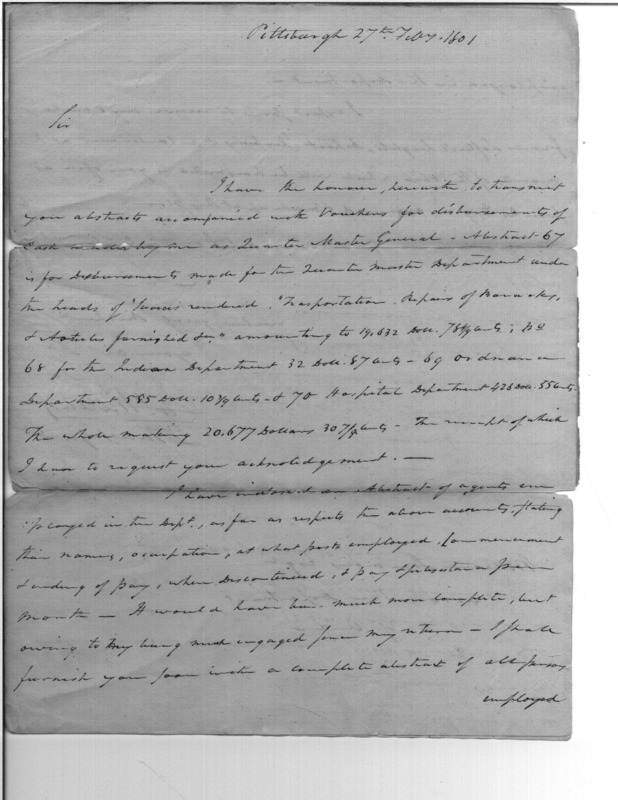 Pittsburgh 27th Feby. 1801
Sir
I have the honour, herewith to transmit
you abstracts accompanied with Vouchers for disbursements of
Cash made by me as Quarter Master General - Abstract 67
is for Disbursements made for the Quarter Master Department under
the heads of "Services rendered, "Trasportation. Repairs of Barracks,
& Articles furnished &c" amounting to 19,632 Doll. 78 Cents; No
68 for the Indian Department 32 Doll. 87 Cents - 69 Ordnance
Department 585 Doll. 10 Cents - & 70 Hospital Department 426 Doll. 55 Cents.
The whole making 20.677 Dollars 30 7/8 Cents - The receipt of which
I have to request your acknoledgement. —
I have inclosed an Abstract of agents em
ployed in the Dept., as far as respects the above accounts, stating
their names, occupation, at what posts employed, Commencement
& ending of pay, when Discontinued, & pay & subsistance per
month — It would have been much more complete, but
owing to my being much engaged since my return - I shall
furnish you soon with a complete abstract of all persons
employed